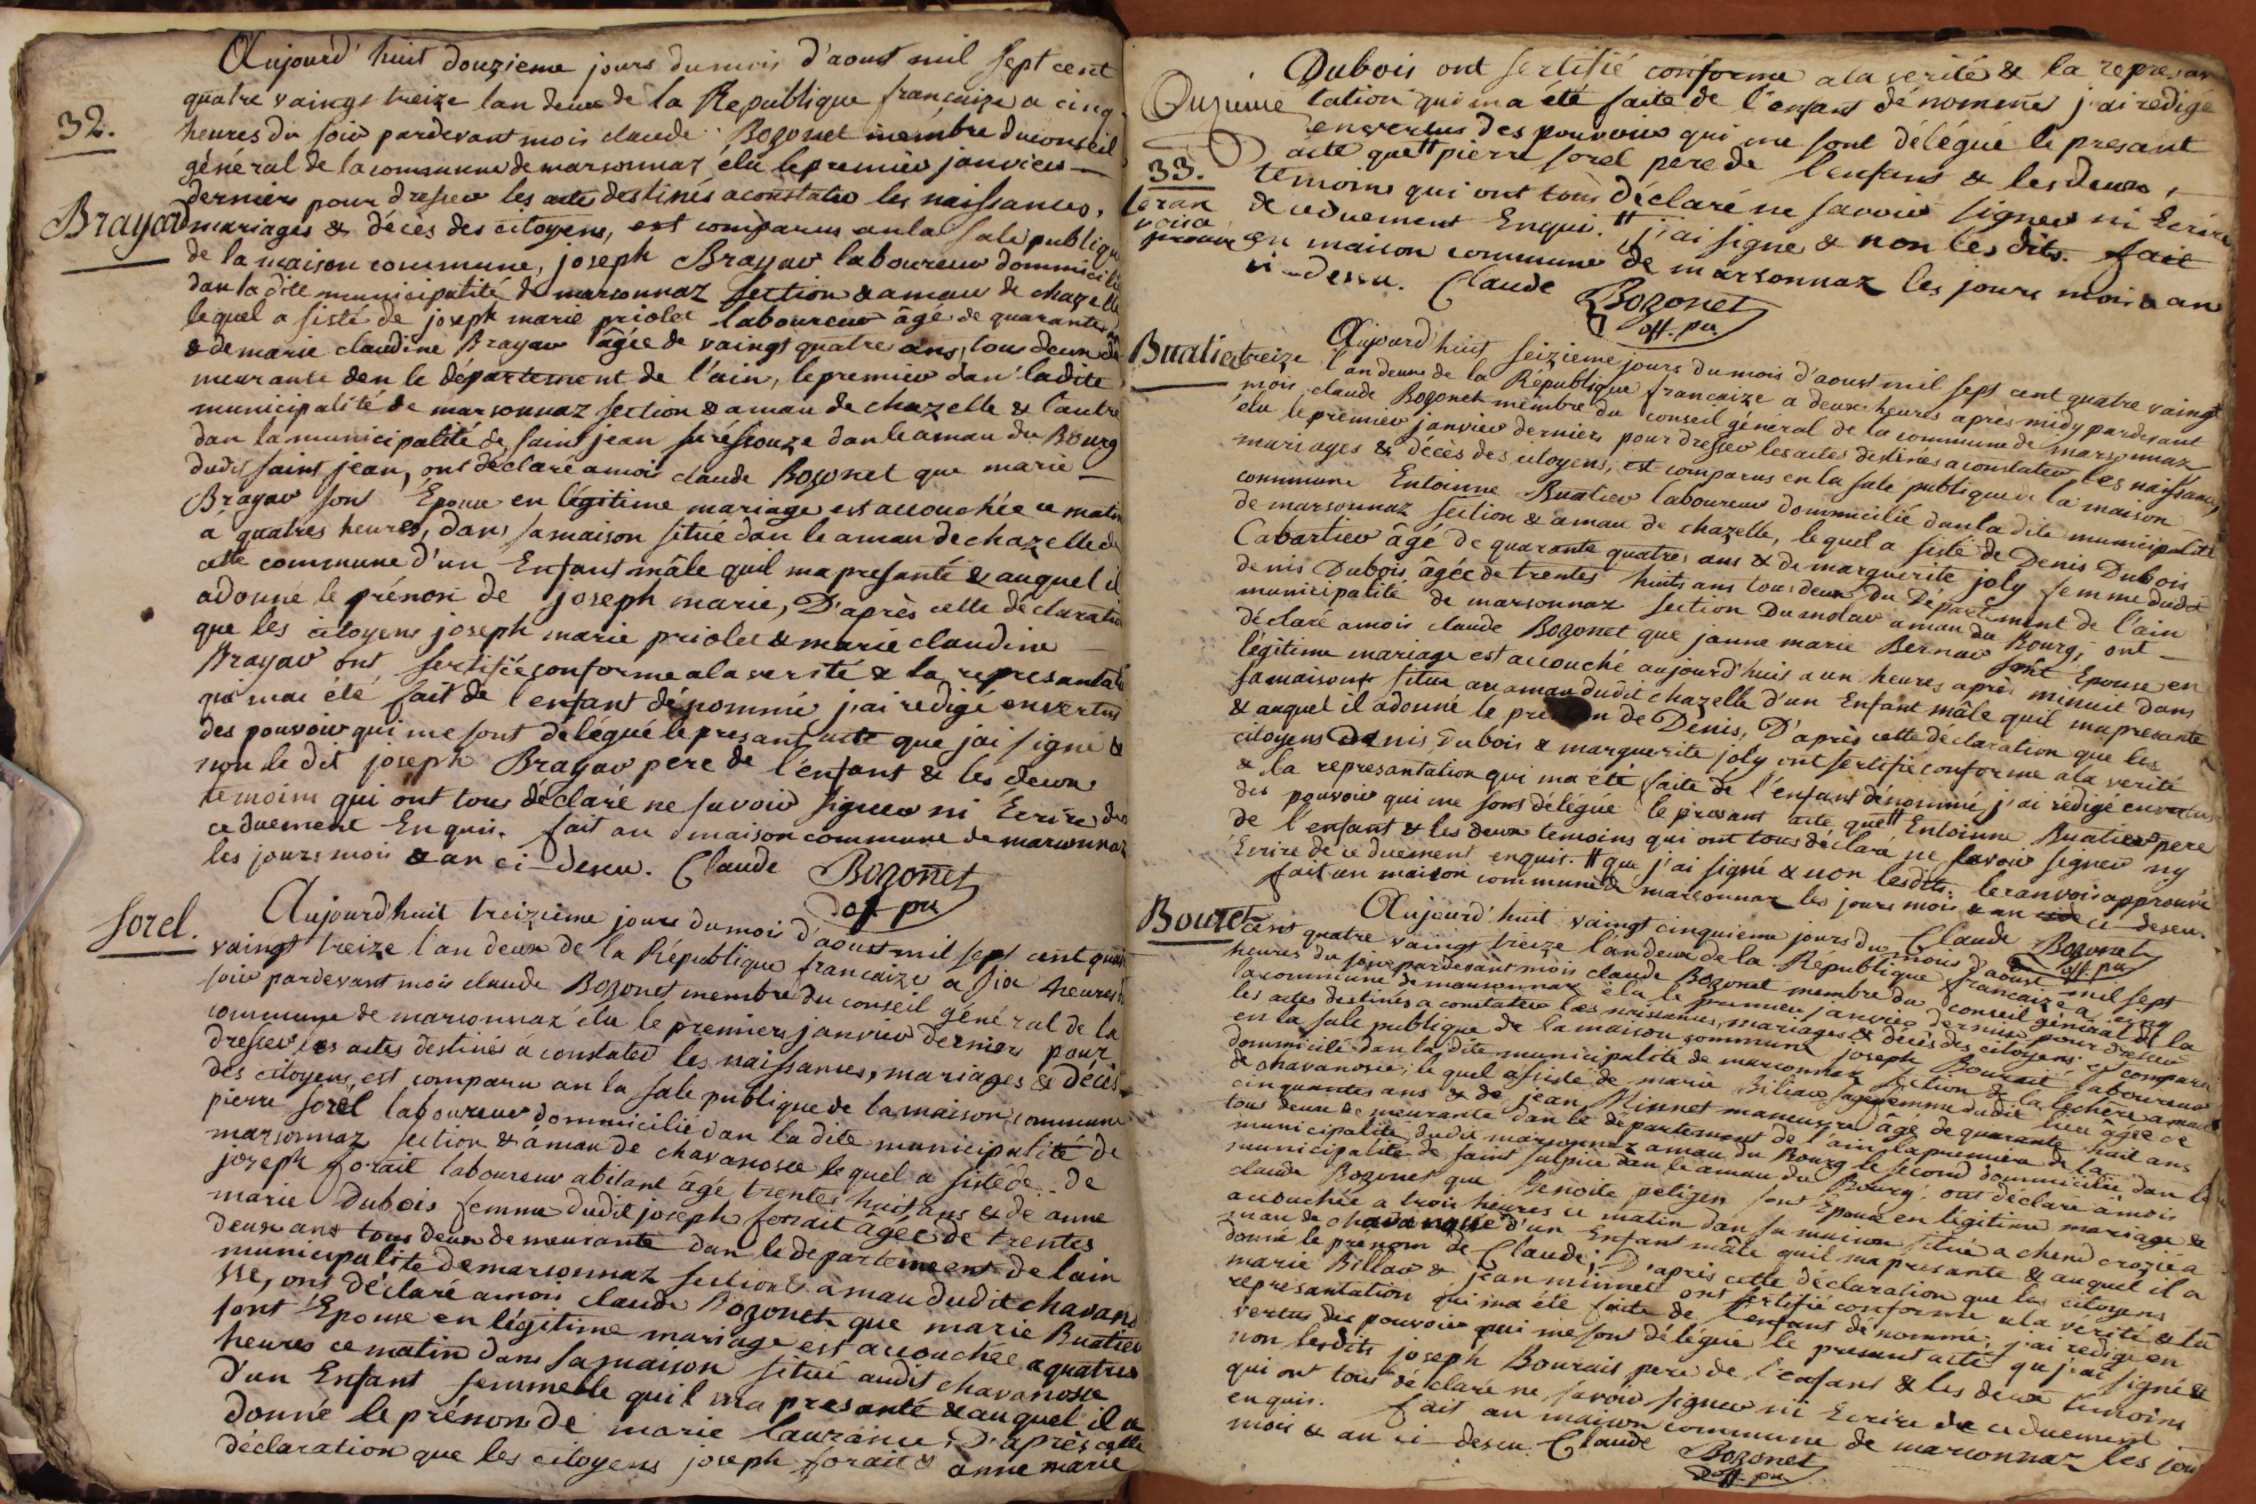 Aujourd'huit douzieme jours dumois d'aoust mil sept cent
quatre vaingt treize lan deux de la Republique françaize a cinq
32.
heures du soir pardevant mois claude Bozonet membre duconseil
général de la commune de marsonnaz élu le premier janvier
derniers pour dresser les actes destinés a constater les naissances,
Brayard
mariages & décès des citoyens, est comparus enla sale publique
de la maison commune, joseph Brayar laboureur dommicilié
dan la dite municipalité de marsonnaz section & amau de chazelle
lequel a sisté de joseph marie priolet laboureur âgé de quarante
& de marie claudine Brayar âgée de vaingt quatre ans, tous deux de
meurante den le departement de l'ain, le premier dan ladite
municipalité de marsonnaz section & amau de chazelle & l'autre
dan la municipalité de saint jean su réssouze dan le amau du Bourg
dudit saint jean, ont déclaré a mois claude Bozonet que marie
Brayar sont Épouse en légitime mariage est accouchée ce matin
a quatres heures, dans sa maison situé dan le amau de chazelle de
cette commune d'un Enfant mâle quil ma presanté & auquel il
adonné le prénon de joseph marie, D'après cette déclaration
que les citoyens joseph marie priolet & marie claudine
Brayar ont sertifié conforme a la verité & la represantation
qui mai été fait de l'enfant dénommé j'ai redigé en vertus
des pouvoir qui me sont délégué le presant acte que jai signé &
non le dit joseph Brayar pere de l'enfant & les deux
temoins qui ont tous déclaré ne savoir signer ni Ecrire de
ce duement Enquis. fait an maison commune de marsonnaz
les jours mois & an ci-desu. Claude Bozonet
off pu
Sorel.
Aujourd'huit treizieme jours du mois d'aoust mil sept cent quatre
vaingt treize l'an deux de la République francaize a six heures du
soir pardevant mois claude Bozonet membre du conseil général de la
commune de marsonnaz élu le premiers janvier derniers pour
dresser les actes destinés a constater les naissances, mariages & décès
des citoyens, est comparu an la sale publique de la maison commune
pierre Sorel laboureur dommicilié dan la dite municipalité de
marsonnaz section & amau de chavanosse lequel a sisté de de
joseph forait laboureur abitant âgé trentes huit ans & de anne
marie Dubois femme dudit joseph forait âgée de trentes
deux ans tous deux demeurante dan le departement de lain
municipalité de marsonnaz section & amau dudit chavano
sse, ont déclaré a mois claude Bozonet que marie Buatier
sont Epouse en légitime mariage est accouchée a quatres
heures ce matin dans sa maison situé audit chavanosse
d'un Enfant femmelle quil ma presanté & auquel il a
donné le prénom de marie laurance, D'après cette
déclaration que les citoyens joseph forait & anne marie
Dubois ont sertifié conforme a la verité & la represan
tation qui ma été faite de l'enfant dénommé j'ai redigé
envertus des pouvoir qui me sont délégué le presant
acte que # pierre sorel pere de l'enfant & les deux
33.
temoins qui ont tous déclaré ne savoir signer ni Ecrire
de ceduement Enquis. # j'ai signé & non les dits. fait
en maison commune de marsonnaz les jours mois & an
ci-desu. Claude Bozonet
off. pu.
Buatier
Aujourd'huit seizieme jours du mois d'aoust mil sept cent quatre vaingt
treize l'an deux de la République francaize a deux heures après midy pardevant
mois claude Bozonet membre du conseil général de la commune de marsonnaz
élu le premier janvier derniers pour dresser les actes destinés a constater les naissances,
mariages & décès des citoyens, est comparus en la sale publique de la maison
commune Entoinne Buatier laboureur dommicilié dan la dite municipalité
de marsonnaz section & amau de chazelle, lequel a sisté de Denis Dubois
Cabartier âgé de quarante quatres ans & de marguerite joly femme dudit
denis Dubois âgée de trentes huits ans tous deux du Département de l'ain
municipalité de marsonnaz section Du molar amau du Bourg, ont
déclaré a mois claude Bozonet que janne marie Bernar sont Epouse en
légitime mariage est accouché aujourd'huis a un heures après minuit dans
sa maison situé au amau dudit chazelle d'un Enfant mâle quil ma presanté
& auquel il adonné le de Denis, D'après cette déclaration que les
citoyens Denis Dubois & marguerite joly ont sertifié conforme a la verité
& la represantation qui ma été faite de l'enfant dénommé, j'ai rédigé en vertus
des pouvoir qui me sont délégué le presant acte que # Entoinne Buatier pere
de l'enfant & les deux temoins qui ont tous déclaré ne savoir signer ny
Ecrire de ce duement enquis. # que j'ai signé & non lesdits. le ranvois approuvé
fait en maison commune de marsonnaz les jours mois & an ci-desu.
Claude Bozonet
off. pu
Bouret
Aujourd'huit vaingt cinquieme jours du mois d'aoust mil sept
cent quatre vaingt treize l'an deux de la République francaize a cinq
heures du soir pardevant mois claude Bozonet membre du conseil général de la
commune de marsonnaz élu le premier janvier dernier pour dresser
les actes destinés a constater les naissances, mariages & décès des citoyens est comparu
en la sale publique de la maison commune joseph Bourait laboureur
dommicilié dan la dite municipalité de marsonnaz section de la lechère amau
de chavanosse, le quel a sisté de marie Biliar sagefemme dudit lieu âgée de
cinquantes ans & de jean Minnet maneuvre âgé de quarante huit ans
tous deux de meurante dan le departement de l'ain la premiere de la
municipalité dudit marsonnaz amau du Bourg le second dommicilié dan la
municipalité de saint sulpice dan le amau du Bourg, ont déclaré a mois
claude Bozonet que Benoite sont Epouse en légitime mariage &
accouchée a trois heures ce matin dan sa maison situé a a
mau de chavanosse d'un Enfant mâle quil ma presanté & auquel il a
donné le prenom de Claude; D'après cette déclaration que les citoyens
marie Billar & jean minnet ont sertifié conforme ala verité & la
represantation qui ma été faite de l'enfant dénommé, j'ai redigé en
vertus des pouvoir qui me sont délégué le presant acte que j'ai signé &
non lesdits joseph Bourait pere de l'enfant & les deux temoins
qui ont tous déclaré ne savoir signer ni Ecrire de ce duement
enquis. fait an maison commune de marsonnaz les jours
mois & an ci-desu Claude Bozonet
off. pu